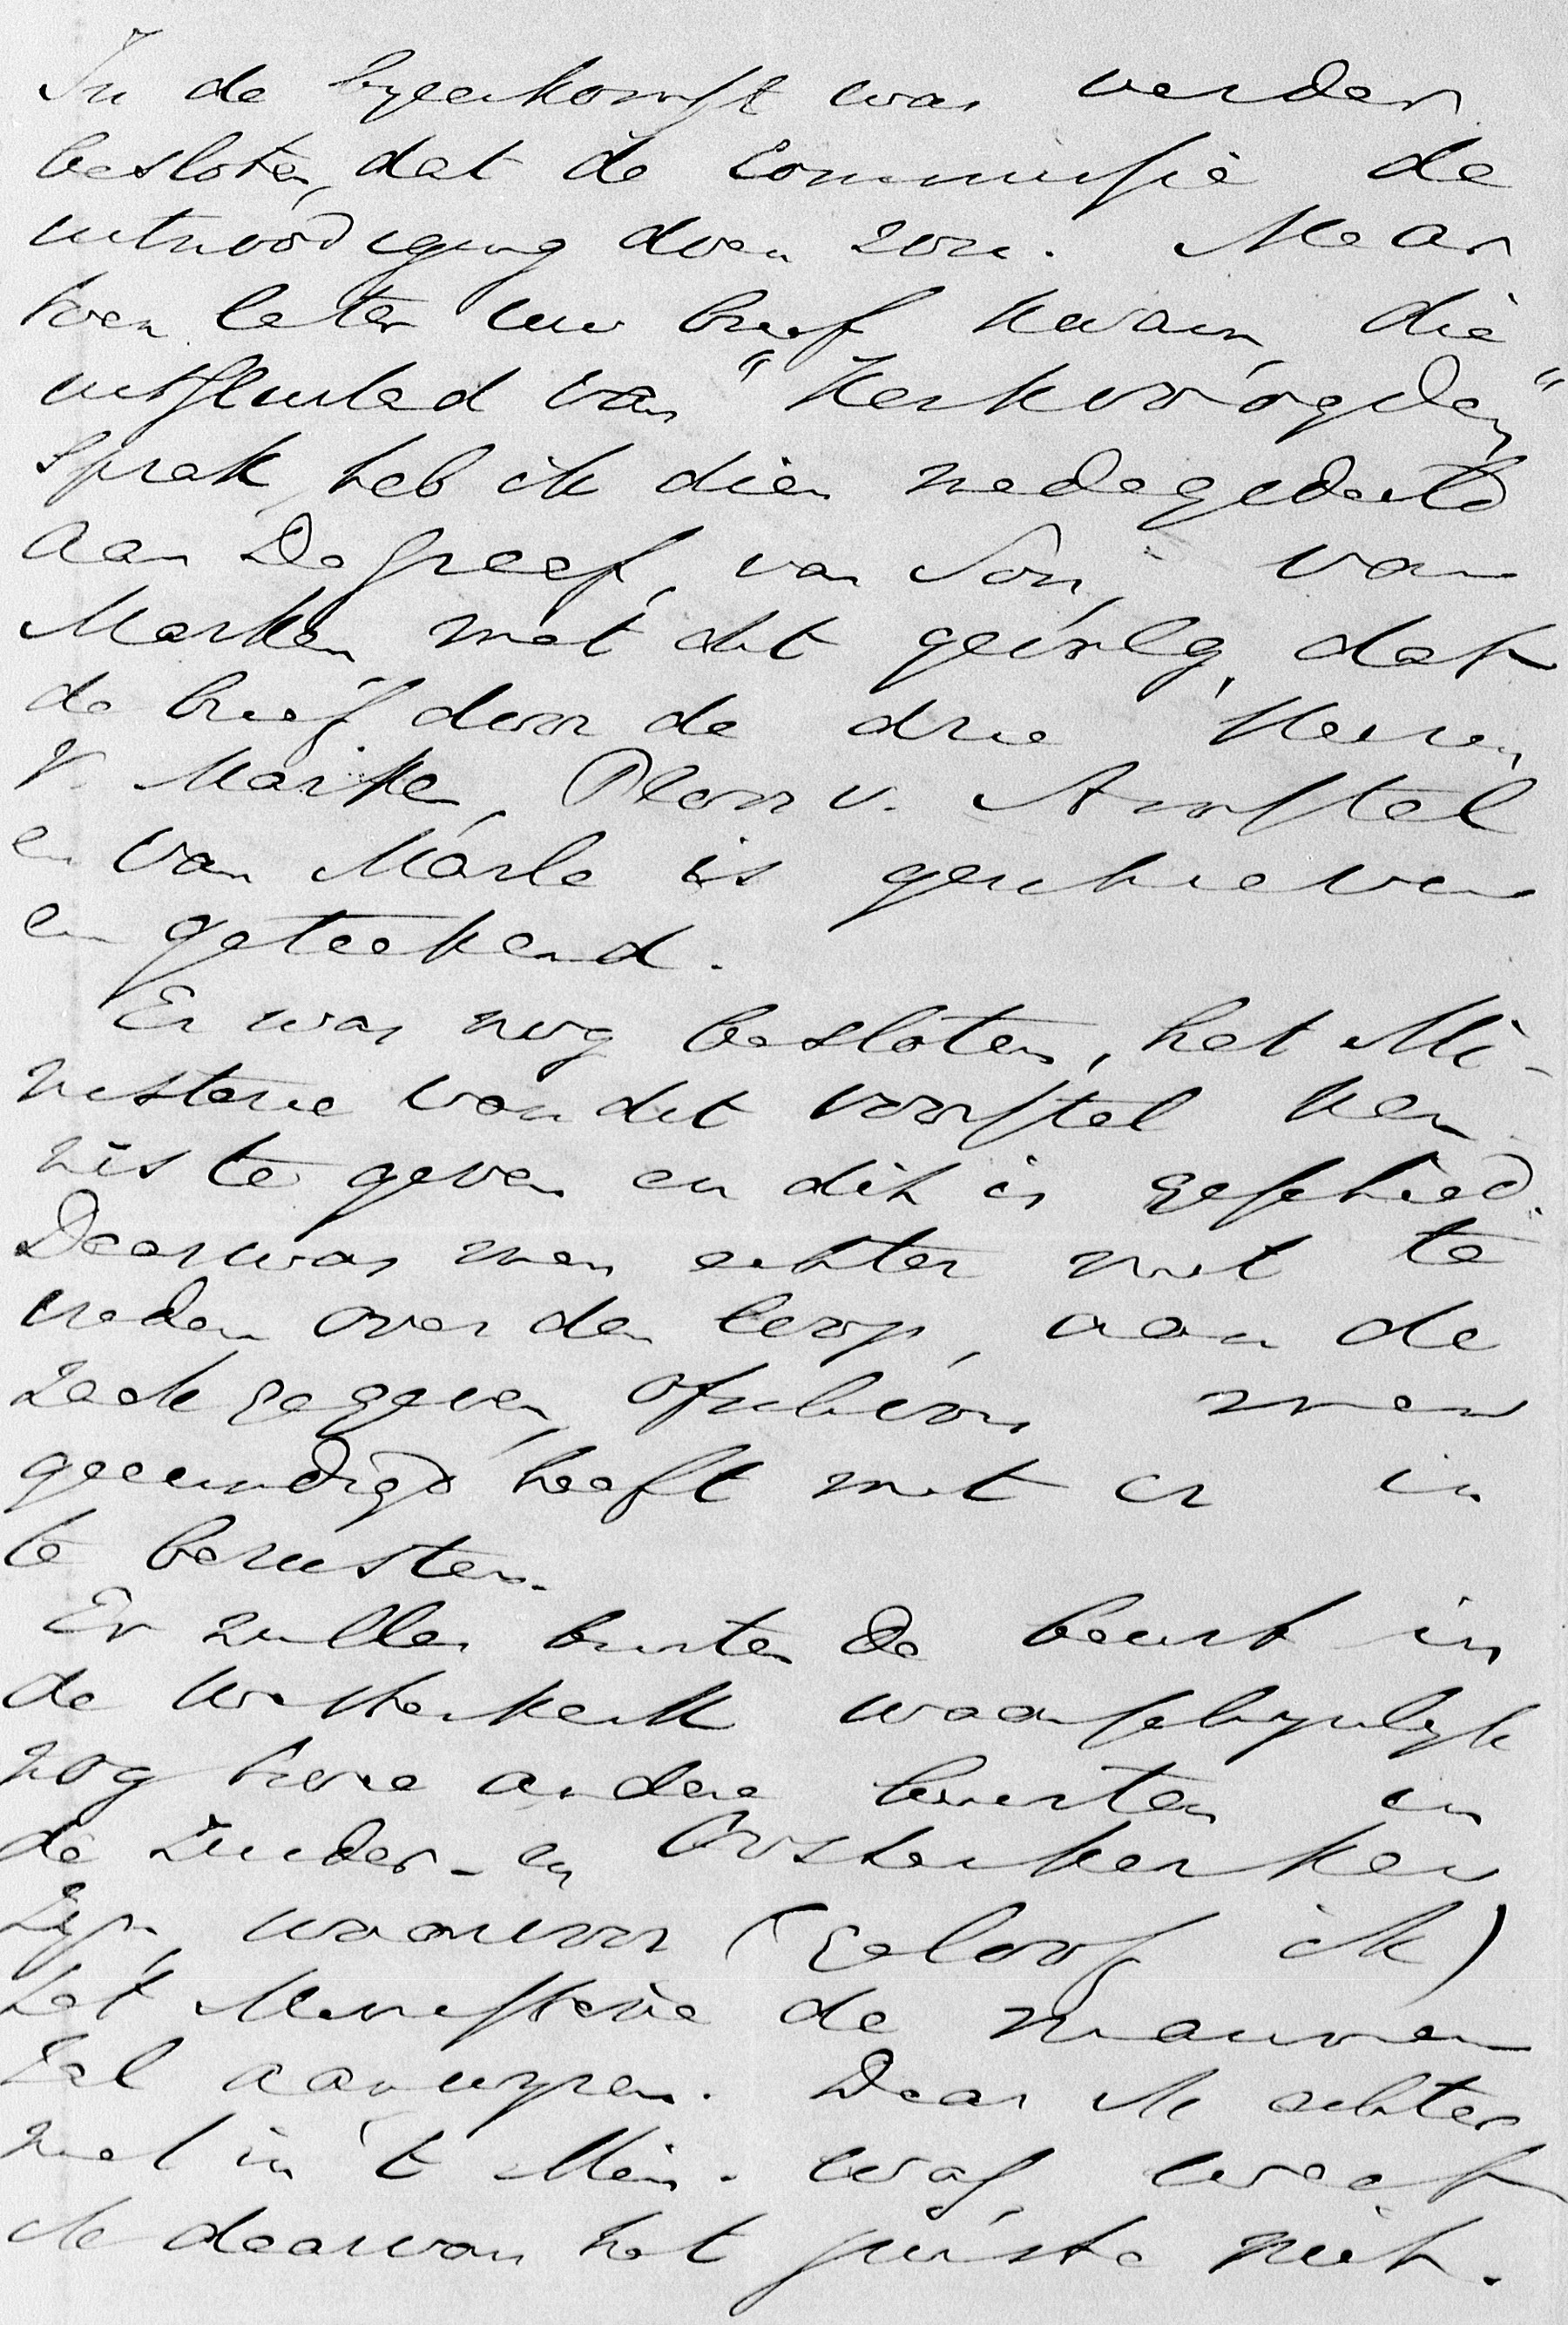 In de byeenkomst was verder
besloten, dat de Commissie de
uitnoodiging doen zou. Maar
toen later uw brief kwam, die
uitsluitend van "Kerkvoogden"
sprak, heb ik dien medegedeeld
aan De Greef, van Son, van
Marken met dit gevolg, dat
de brief door de drie Heeren
v. Marken, Ploos v. Amstel
en van Marle is geschreven
en geteekend.
Er was nog besloten, het Mi-
nisterie van dit voorstel ken
nis te geven en dit is geschied.
Daar was men echter niet te
vreden over den loop, aan de
zaak gegeven, ofschoon men
geeindigd heeft met er in
te berusten.
Er zullen buiten de beurt in
de Westerkerk waarschynlyk
nog twee andere beurten in
de Zuider- en Oosterkerken
zyn, waarvoor (geloof ik)
het Ministerie de mannen
zal aanwyzen. Daar ik echter
niet in 't Min. was, weet
ik daarvan het juiste niet.